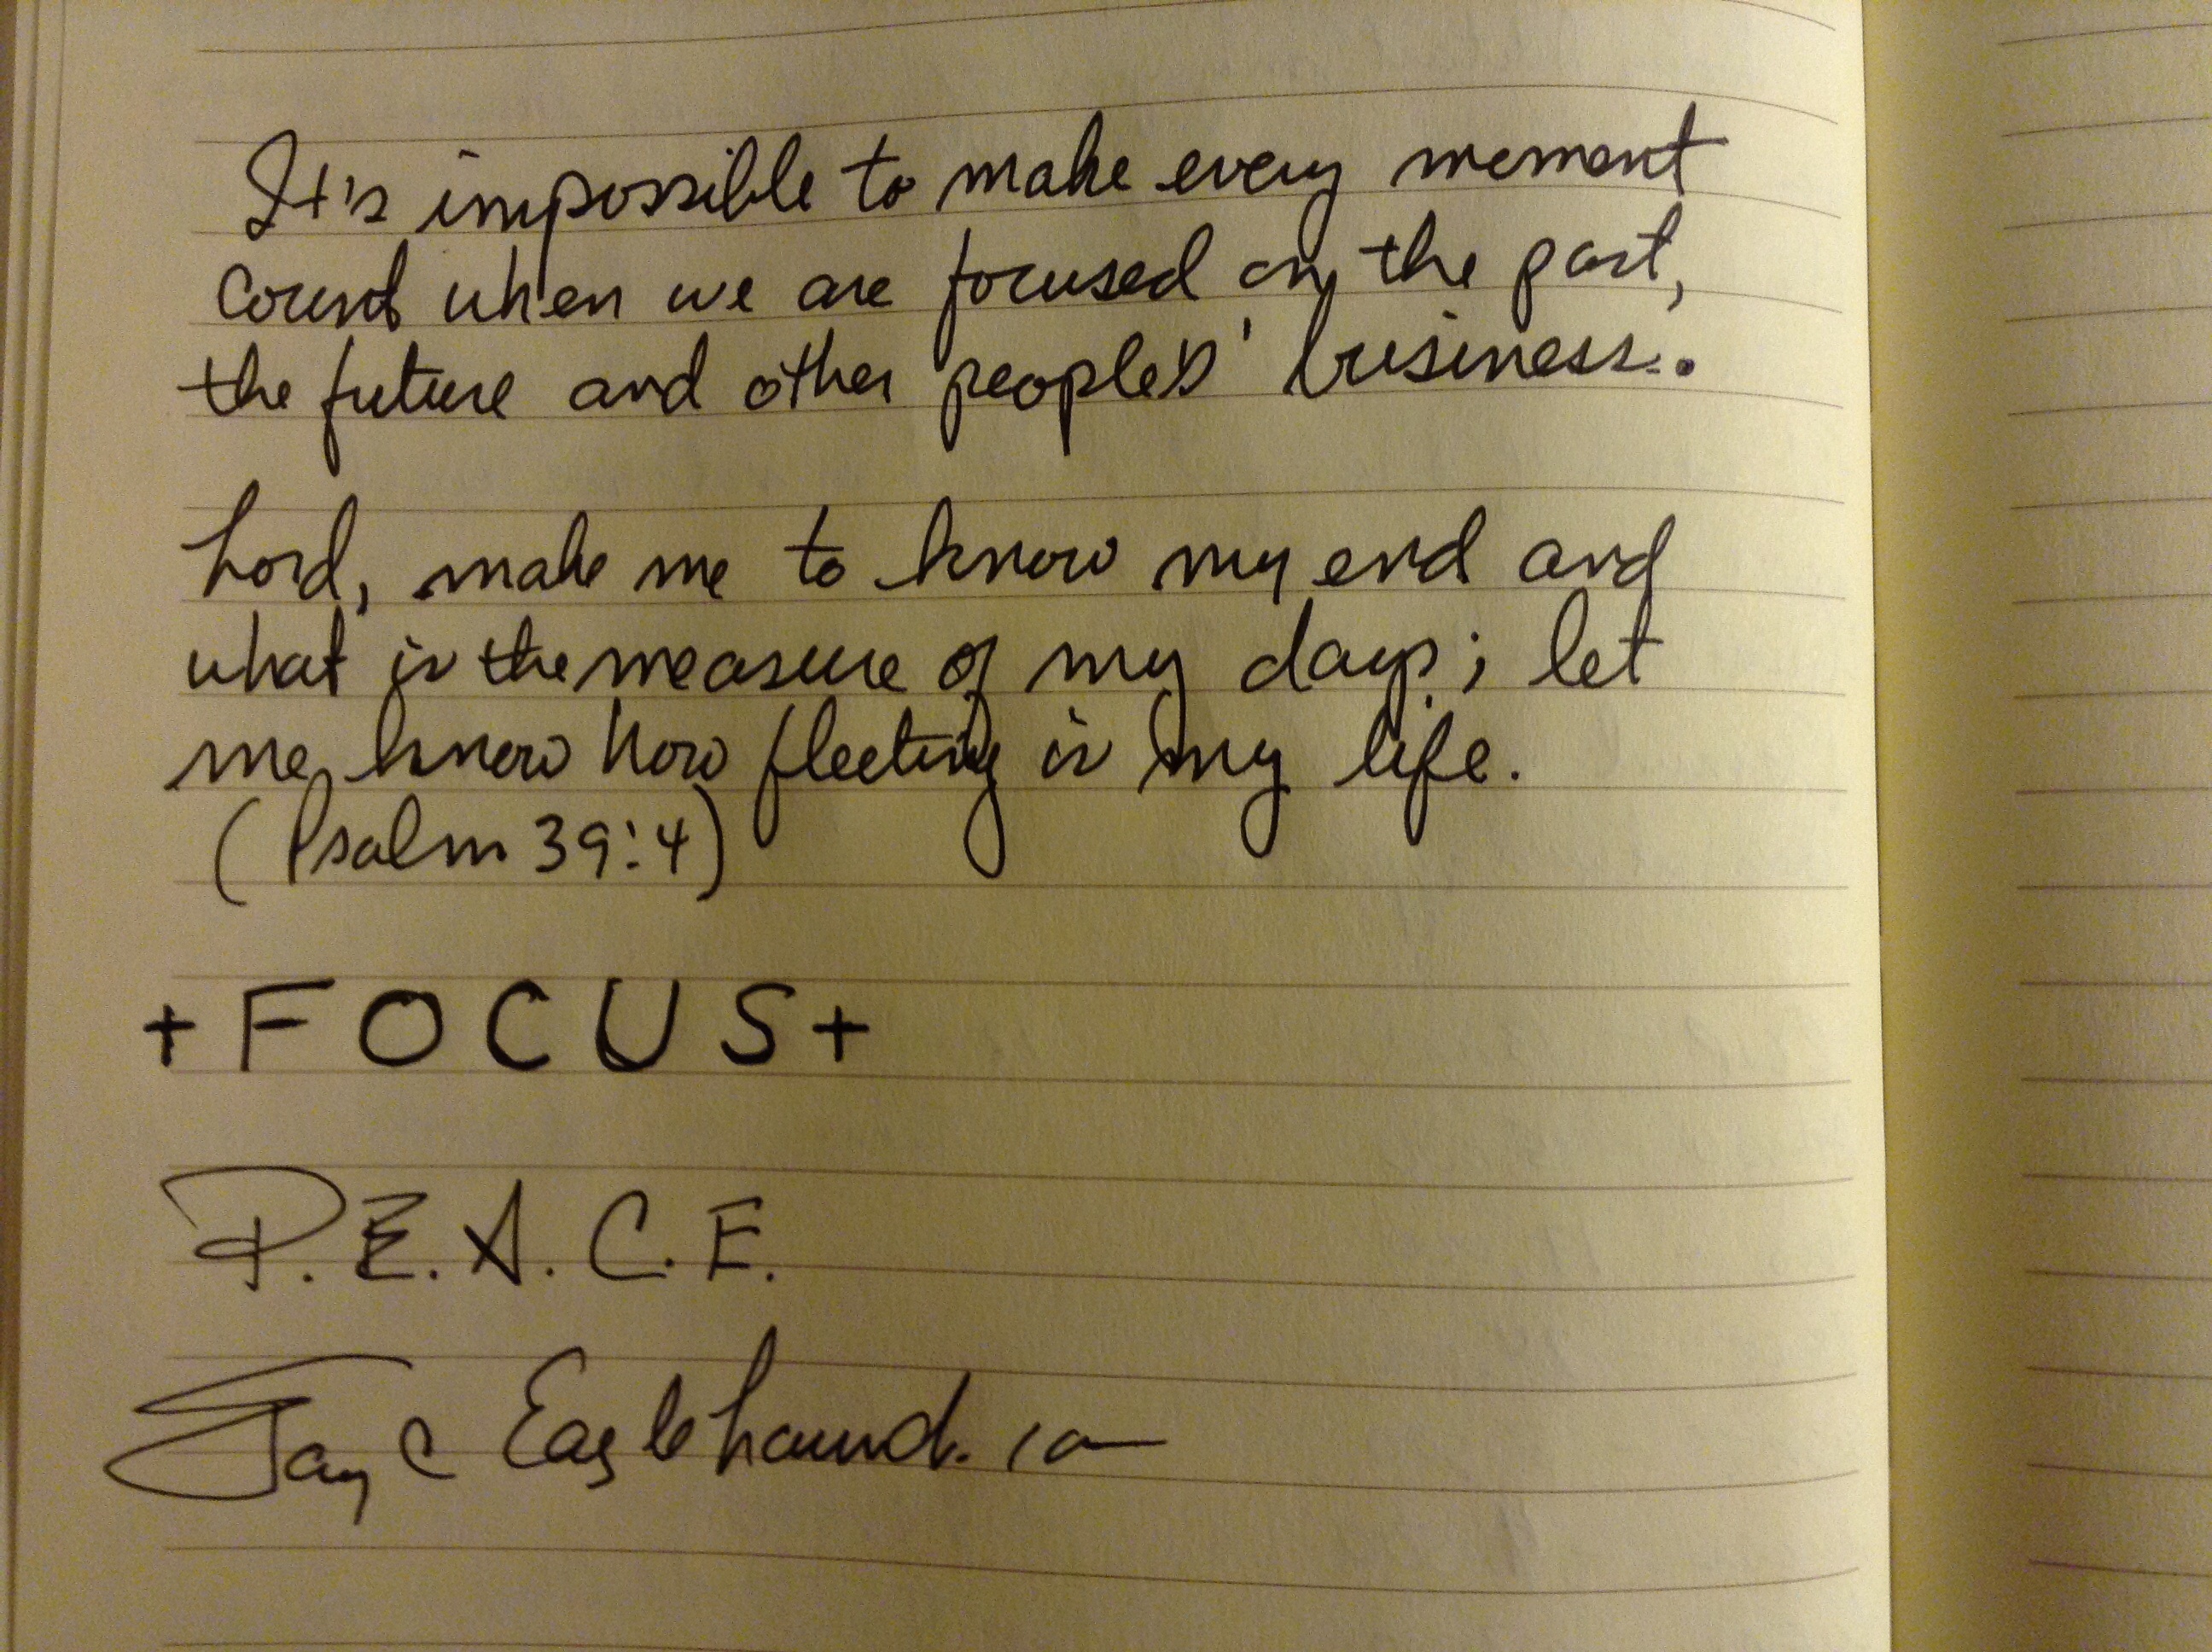 It's impossible to make every moment
count when we are focused on the past,
the future and other peoples' business.
Lord, make me to know my end and
what is the measure of my days; let
me know how fleeting is my life.
(Psalm 39:4)
+ F O C U S +
P.E.A.C.E.
Jay C Eaglehound.